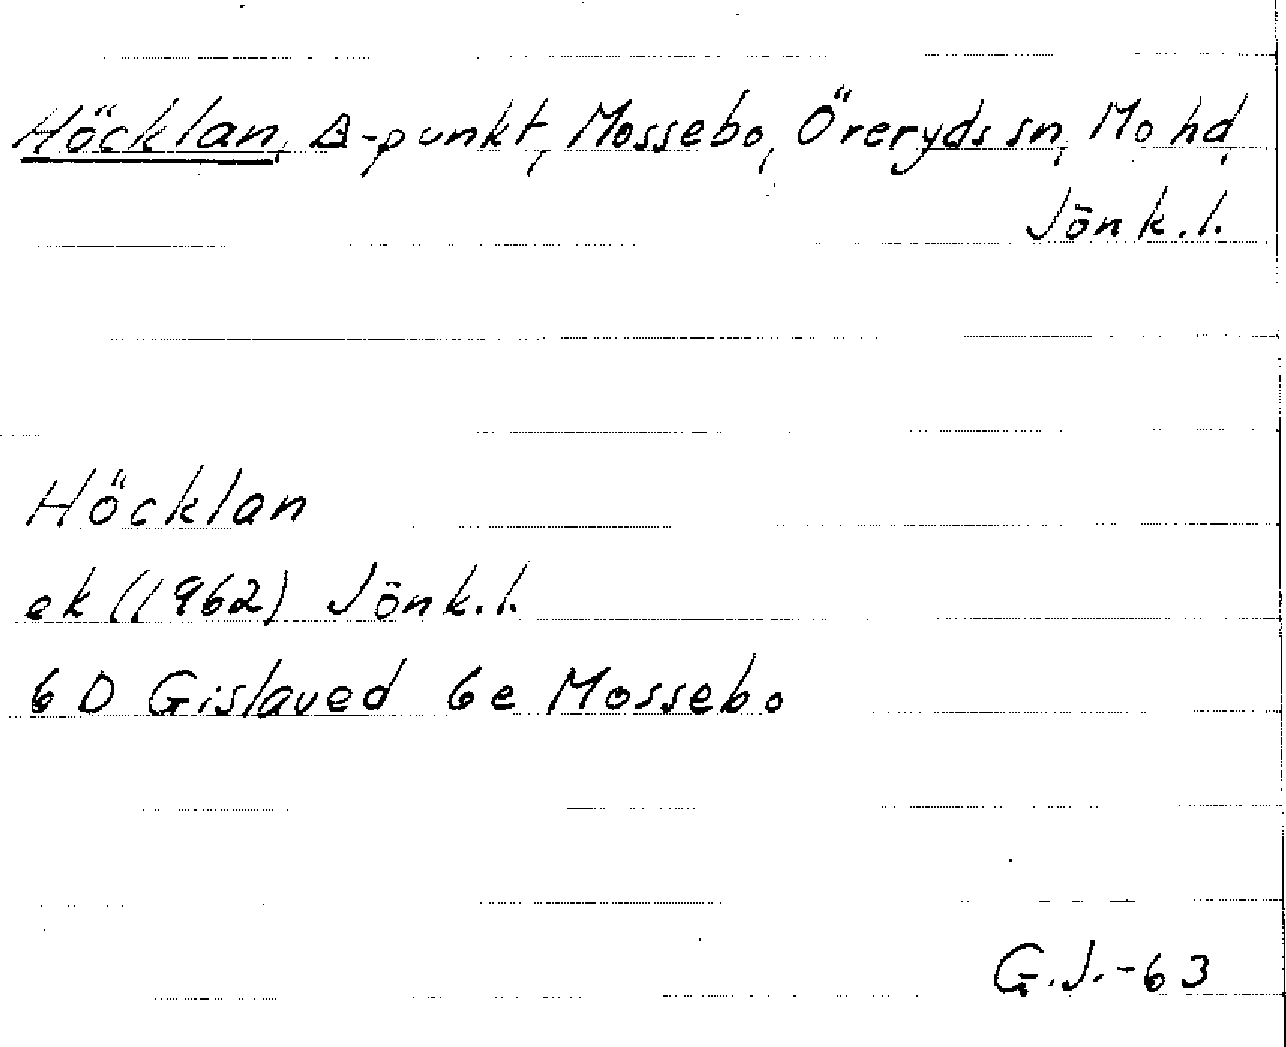 Höcklan, Δ-punkt, Mossebo, Öreryds sn, Mo hd,
Jönk.l.
Höcklan
ek (1962) Jönk.l.
6 D Gislaved 6e Mossebo
G.J.-63